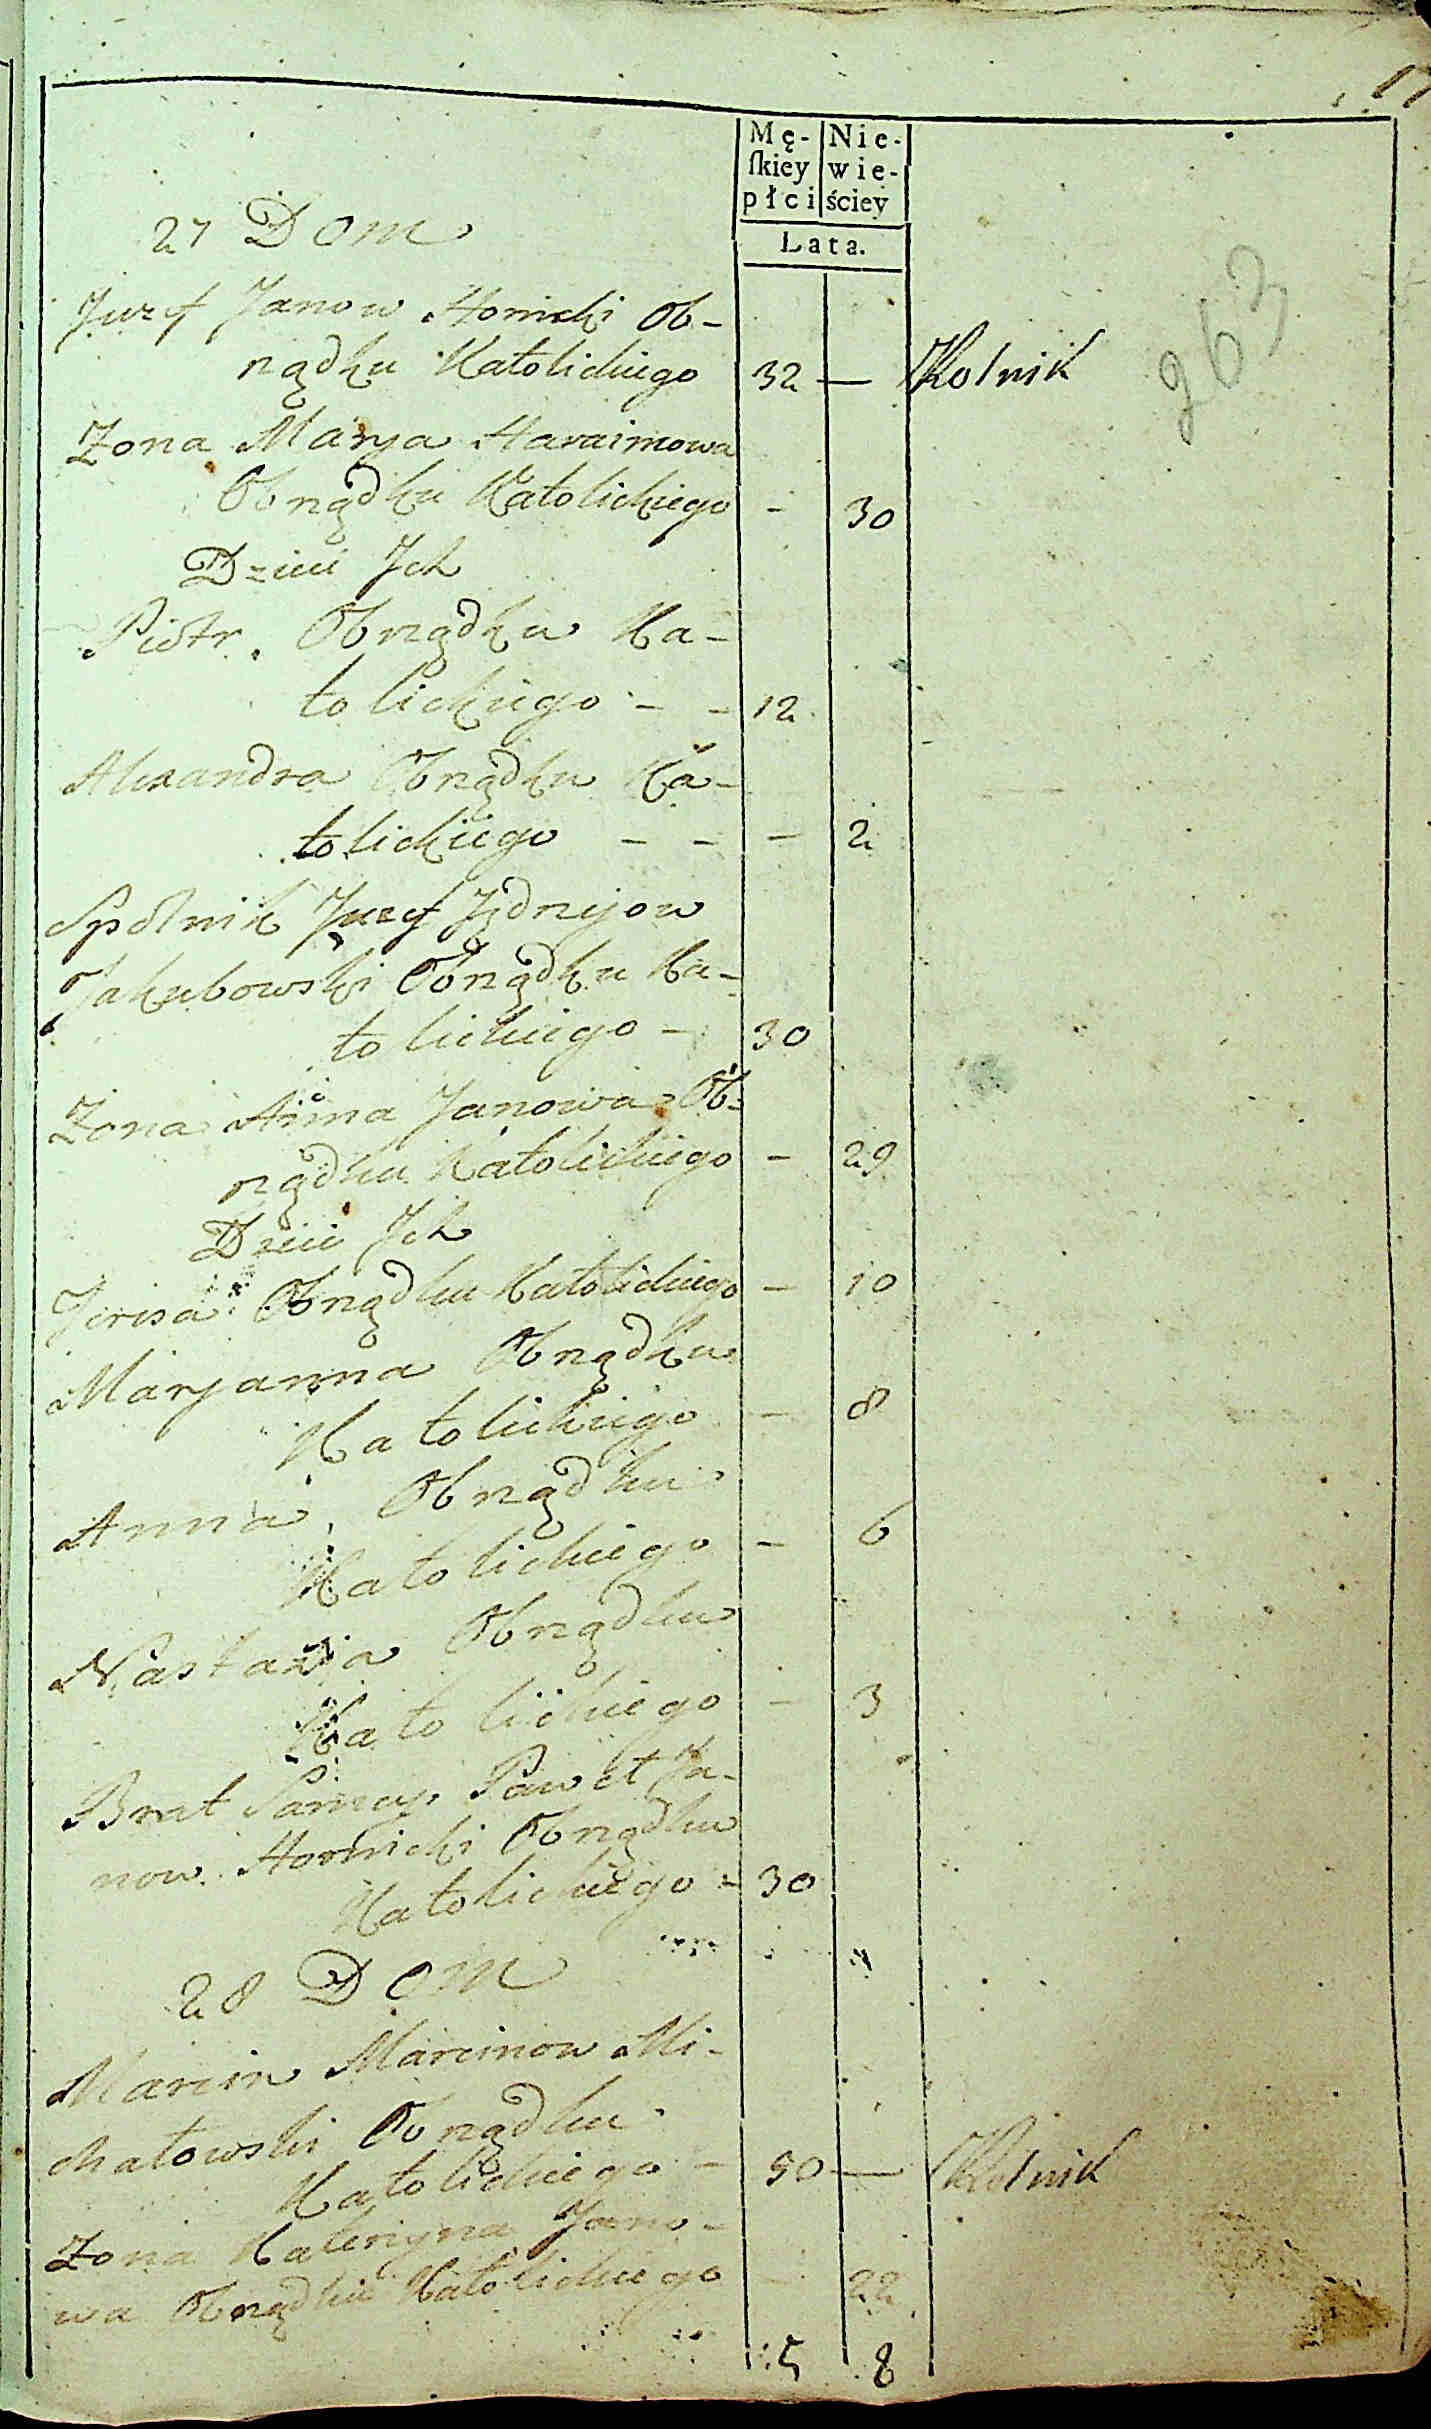 17
Mę- Nie-
ſkiey wie-
płci ściey
Lata.
27 Dom
Juzef Janow Hornicki Ob-
rządku Katolickiego 32 — Rolnik
263
Zona Marya Haraimowa
Obrządku Katolickiego - 30
Dzieci Ich
Piotr. Obrządku Ka-
tolickiego - - 12
Alexandra Obrządku Ka-
tolickiego - - - 2
Spólnik Juzef Jędrzejow
Jakubowski Obrządku Ka-
tolickiego - 30
Zona Anna Janowa Ob-
rządku Katolickiego - 29
Dzieci Ich
Teresa Obrządku Katolickiego - 10
Maryanna Obrządku
Katolickiego - 8
Anna Obrządku
Katolickiego - 6
Nastazia Obrządku
Katolickiego - 3
Brat Paweł Ja-
now Hornicki Obrządku
Katolickiego - 30
28 Dom
Marcin Marcinow Mi-
chałowski Obrządku
Katolickiego - 50 — Rolnik
Zona Kateryna Jano-
wa Obrządku Katolickiego - 22
5 8